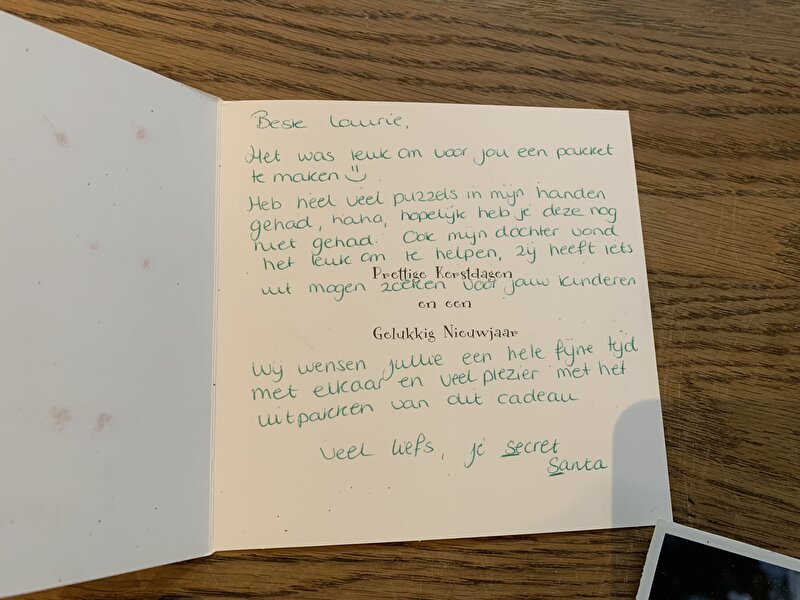 Beste Lowrie,
Het was leuk om voor jou een pakket
te maken
Heb heel veel puzzels in mijn handen
gehad, haha, hopelijk heb je deze nog
niet gehad. Ook mijn dochter vond
het leuk om te helpen, zij heeft iets
Prettige Kerstdagen
uit mogen zoeken voor jouw kinderen
en een
Gelukkig Nieuwjaar
Wij wensen jullie een hele fijne tijd
met elkaar en veel plezier met het
uitpakken van dit cadeau
Veel liefs, je secret
Santa